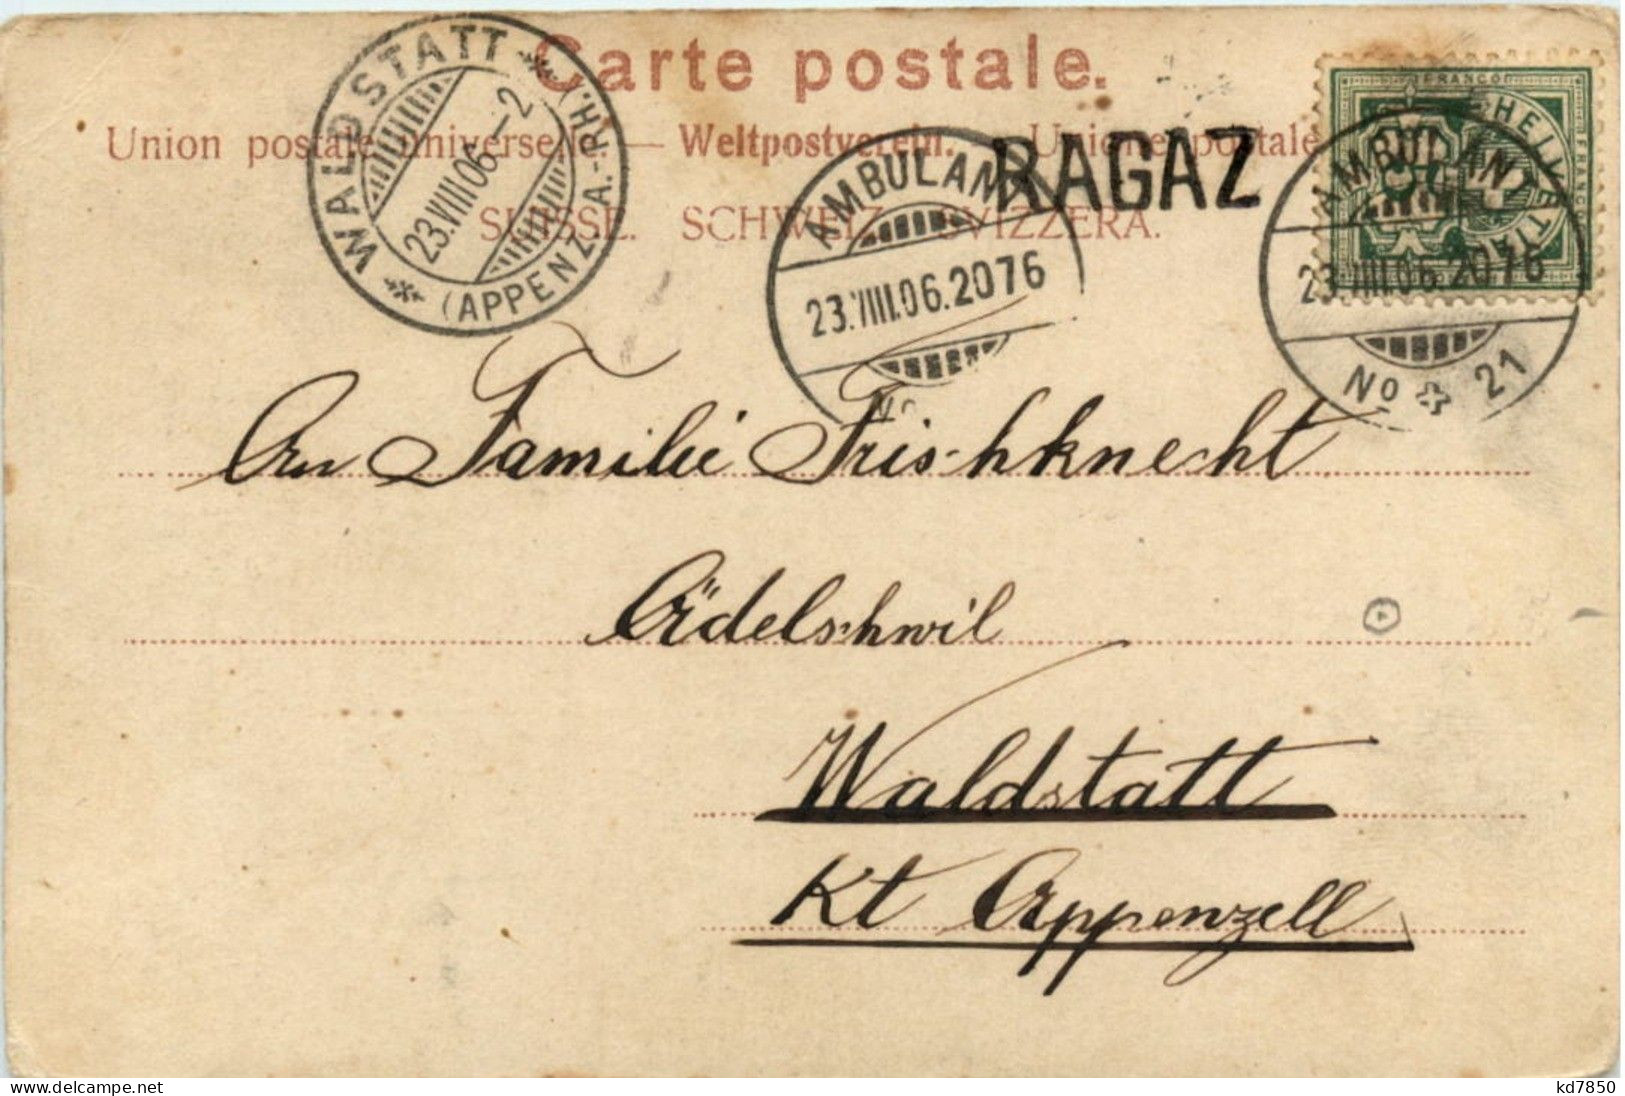 Carte postale.
Union postale universelle. — Weltpostverein. — Unione postale
SUISSE. SCHWEIZ. SVIZZERA.
WALDSTATT
23.VIII.06.–2
(APPENZ. A.-RH.)
AMBULANT
23.VIII.06.2076
No
RAGAZ
FRANCO
HELVETIA
AMBULANT
23.VIII.06.2076
No 21
An Familie Frischknecht
Ädelschwil
Waldstatt
Kt Appenzell
kd7850